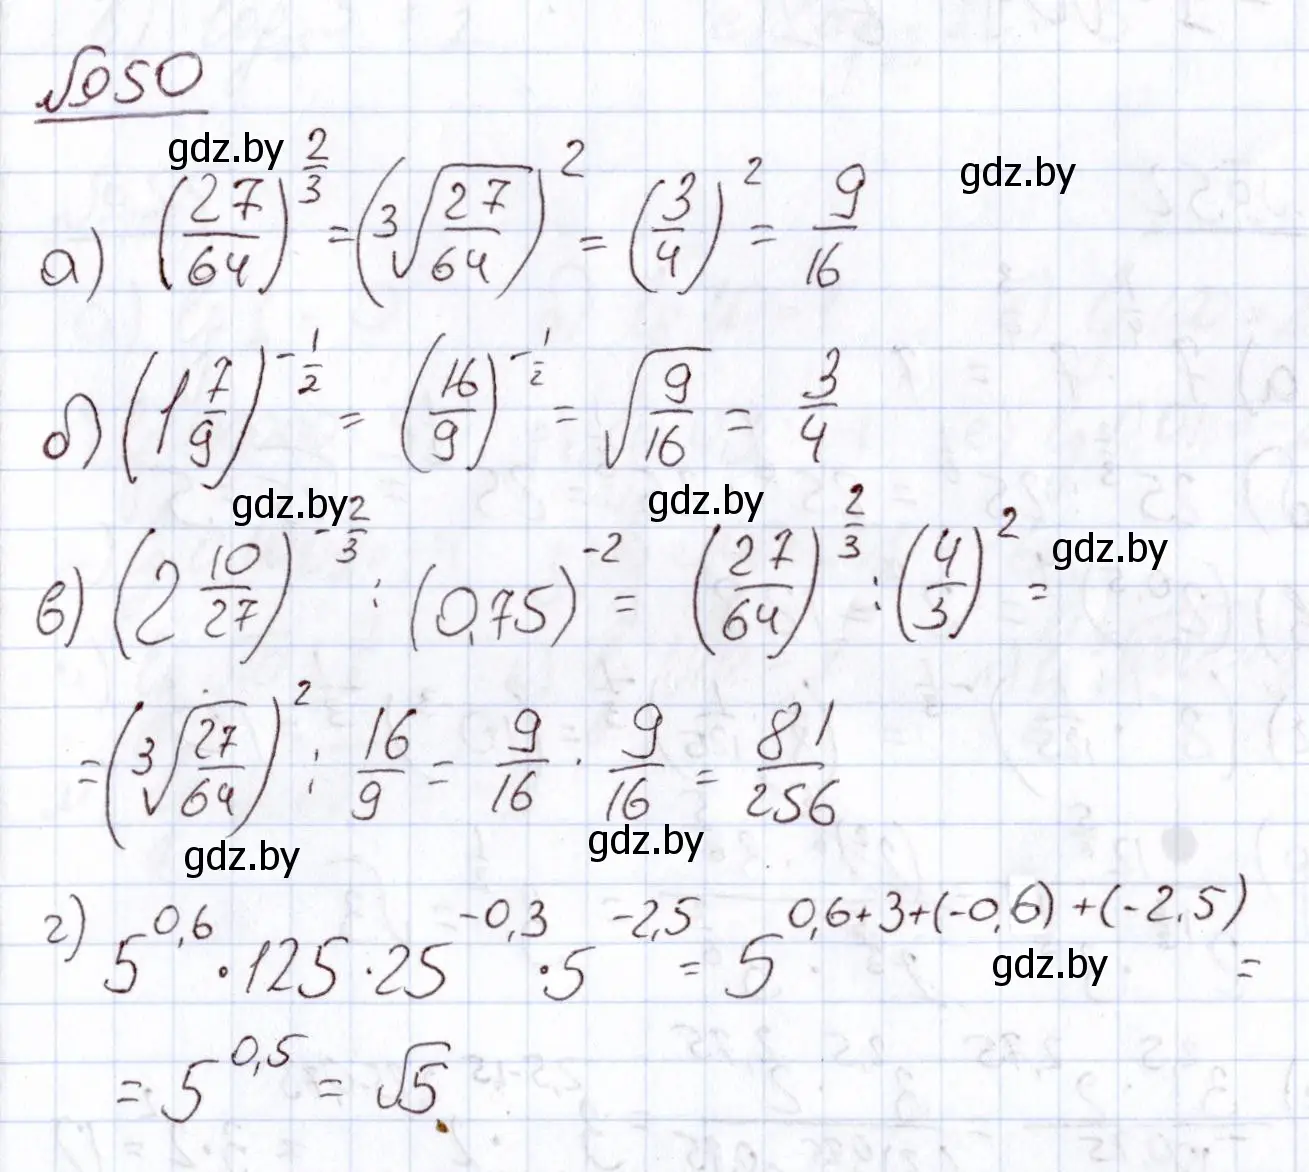 № 050
gdz.by
gdz.by
а) (27/64)^(2/3) = (∛(27/64))^2 = (3/4)^2 = 9/16
б) (1 7/9)^(-1/2) = (16/9)^(-1/2) = √(9/16) = 3/4
gdz.by
gdz.by
gdz.by
в) (2 10/27)^(-2/3) : (0,75)^(-2) = (27/64)^(2/3) : (4/3)^2 =
= (∛(27/64))^2 : 16/9 = 9/16 · 9/16 = 81/256
gdz.by
gdz.by
г) 5^(0,6) · 125 · 25^(-0,3) · 5^(-2,5) = 5^(0,6+3+(-0,6)+(-2,5)) =
gdz.by
= 5^(0,5) = √5